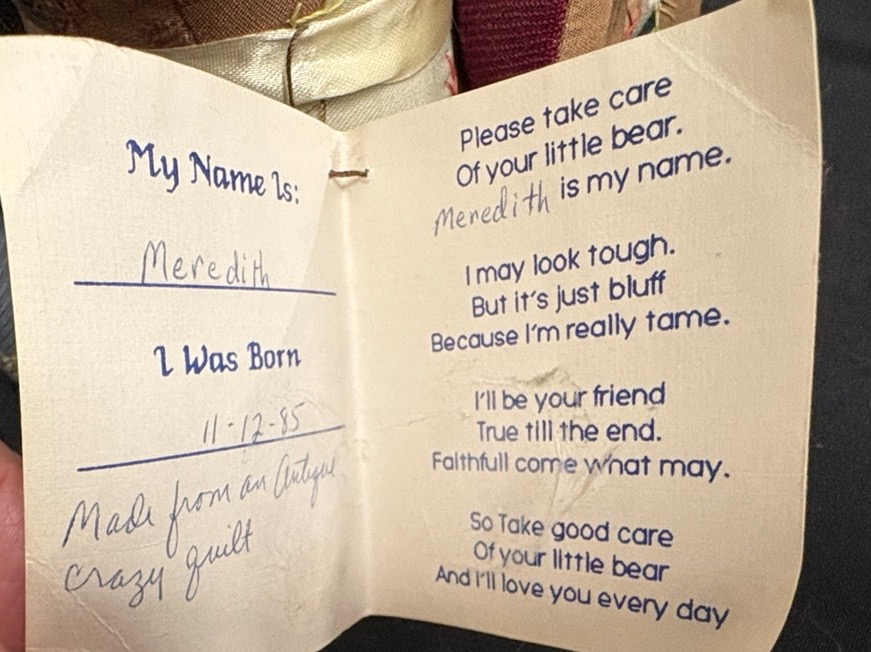 My Name Is:
Meredith
I Was Born
11-12-85
Made from an Antique
crazy quilt
Please take care
Of your little bear.
Meredith is my name.
I may look tough.
But it's just bluff
Because I'm really tame.
I'll be your friend
True till the end.
Faithfull come what may.
So Take good care
Of your little bear
And I'll love you every day